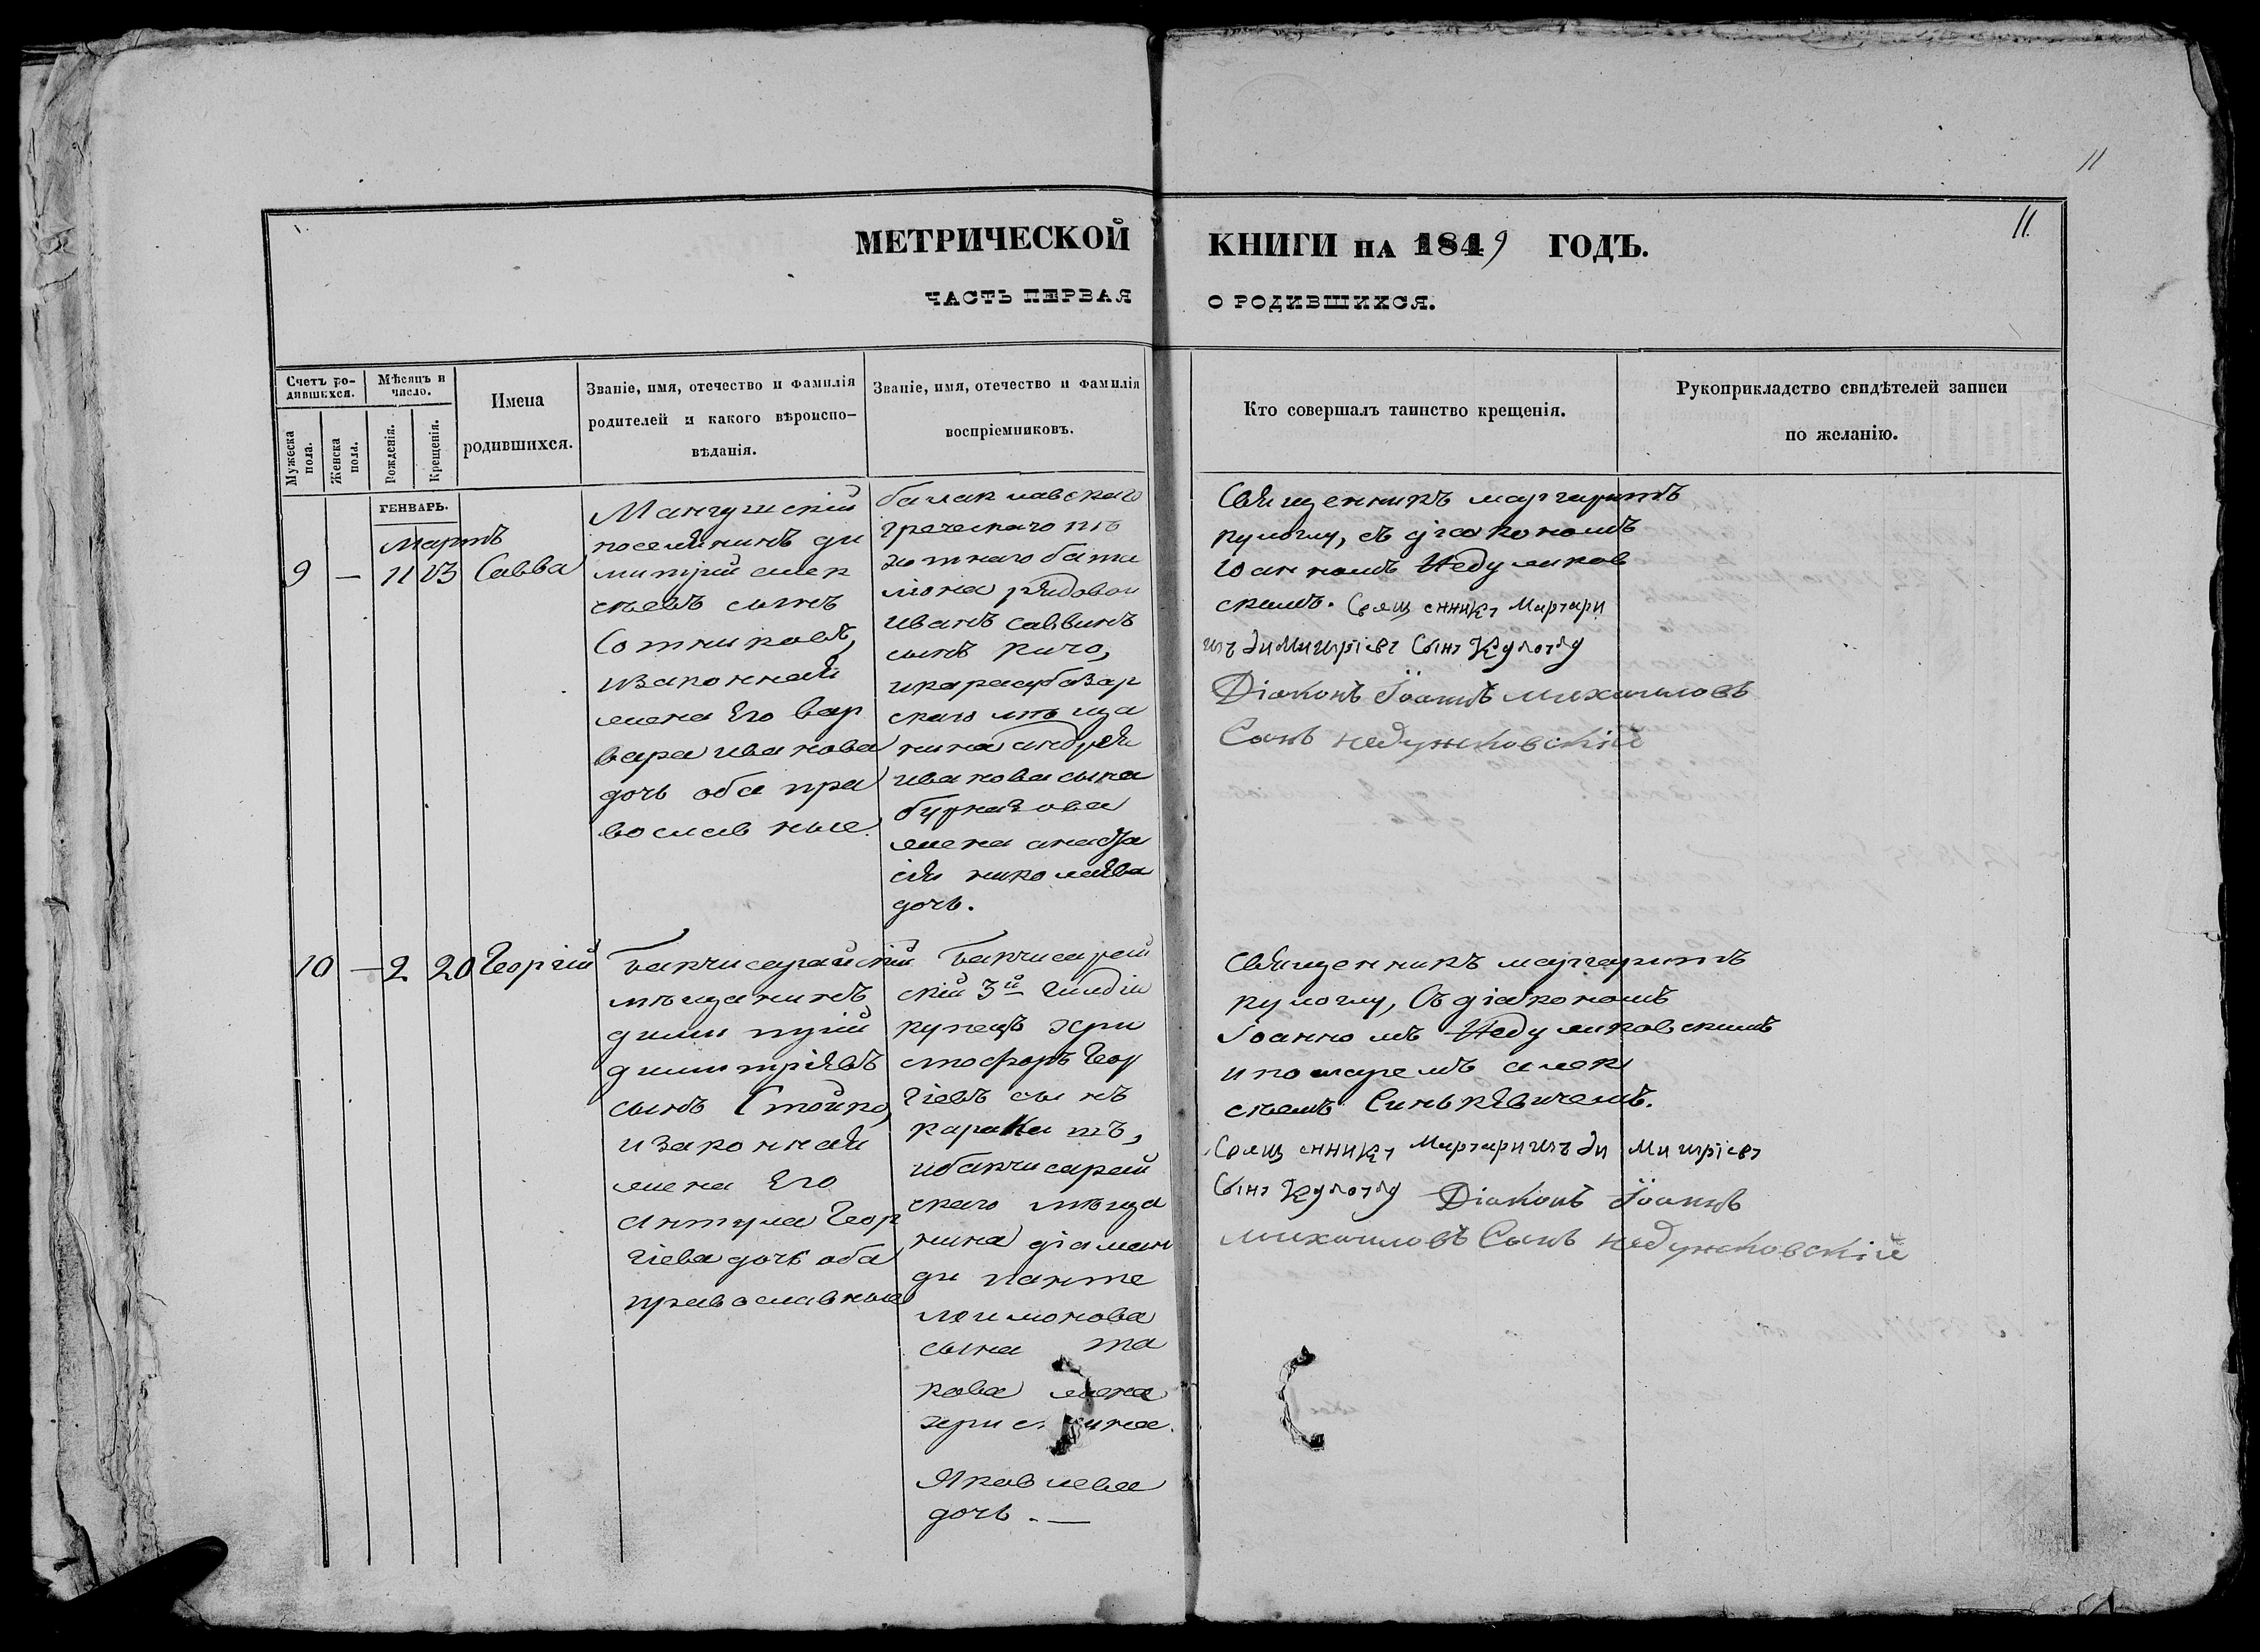 11
11.
МЕТРИЧЕСКОЙ КНИГИ НА 1849 ГОДЪ.
ЧАСТЬ ПЕРВАЯ О РОДИВШИХСЯ.
Счетъ ро-
дившихся.
Мужеска пола.
Женска пола.
Мѣсяцъ и
число.
Рожденія.
Крещенія.
Имена
родившихся.
Званіе, имя, отечество и фамилія
родителей и какого вѣроиспо-
вѣданія.
Званіе, имя, отечество и фамилія
воспріемниковъ.
Кто совершалъ таинство крещенія.
Рукоприкладство свидѣтелей записи
по желанію.
ГЕНВАРЬ.
Мартъ
9 — 11 13 Савва
Мангушскій
поселянинъ ди
митрій алек
сѣевъ сынъ
Сотниковъ,
изаконная
жена Его вар
вара иванова
дочь оба пра
вославные.
балаклавскаго
греческаго пѣ
хотнаго бата
ліона рядовои
иванъ саввинъ
сынъ ричо,
икарасубазар
скаго мѣща
нина андрея
иванова сына
бурназова
жена анаста
сія николаева
дочь.
Священникъ маргаритъ
кулоглу, съ діакономъ
іоанномъ Недужков
скимъ. Священникъ Маргари
тъ диМитріевъ Сынъ Кулоглу
Діаконъ Іоаннъ михаиловъ
Сынъ недужковскій
10 — 2 20 Георгій
Бакчисарайскій
мѣщанинъ
димитрій
димитріевъ
сынъ Стойко,
изаконная
жена Его
Антула Геор
гіева дочь оба
православные
Бакчисарай
скій 3й Гилдіи
купецъ хри
стофоръ Геор
гіевъ сынъ
каракашъ,
ибакчисарай
скаго мѣща
нина діаман
ди панте
леимонова
сына та
кова жена
Яковлева
дочь. —
Священникъ маргаритъ
кулоглу, Съ діакономъ
Іоанномъ Недужковскимъ
ипомаремъ алек
сѣемъ Синькѣвичемъ.
Священникъ Маргаритъ диМитріевъ
Сынъ Кулоглу Діаконъ Іоаннъ
михаиловъ Сынъ недужковскій